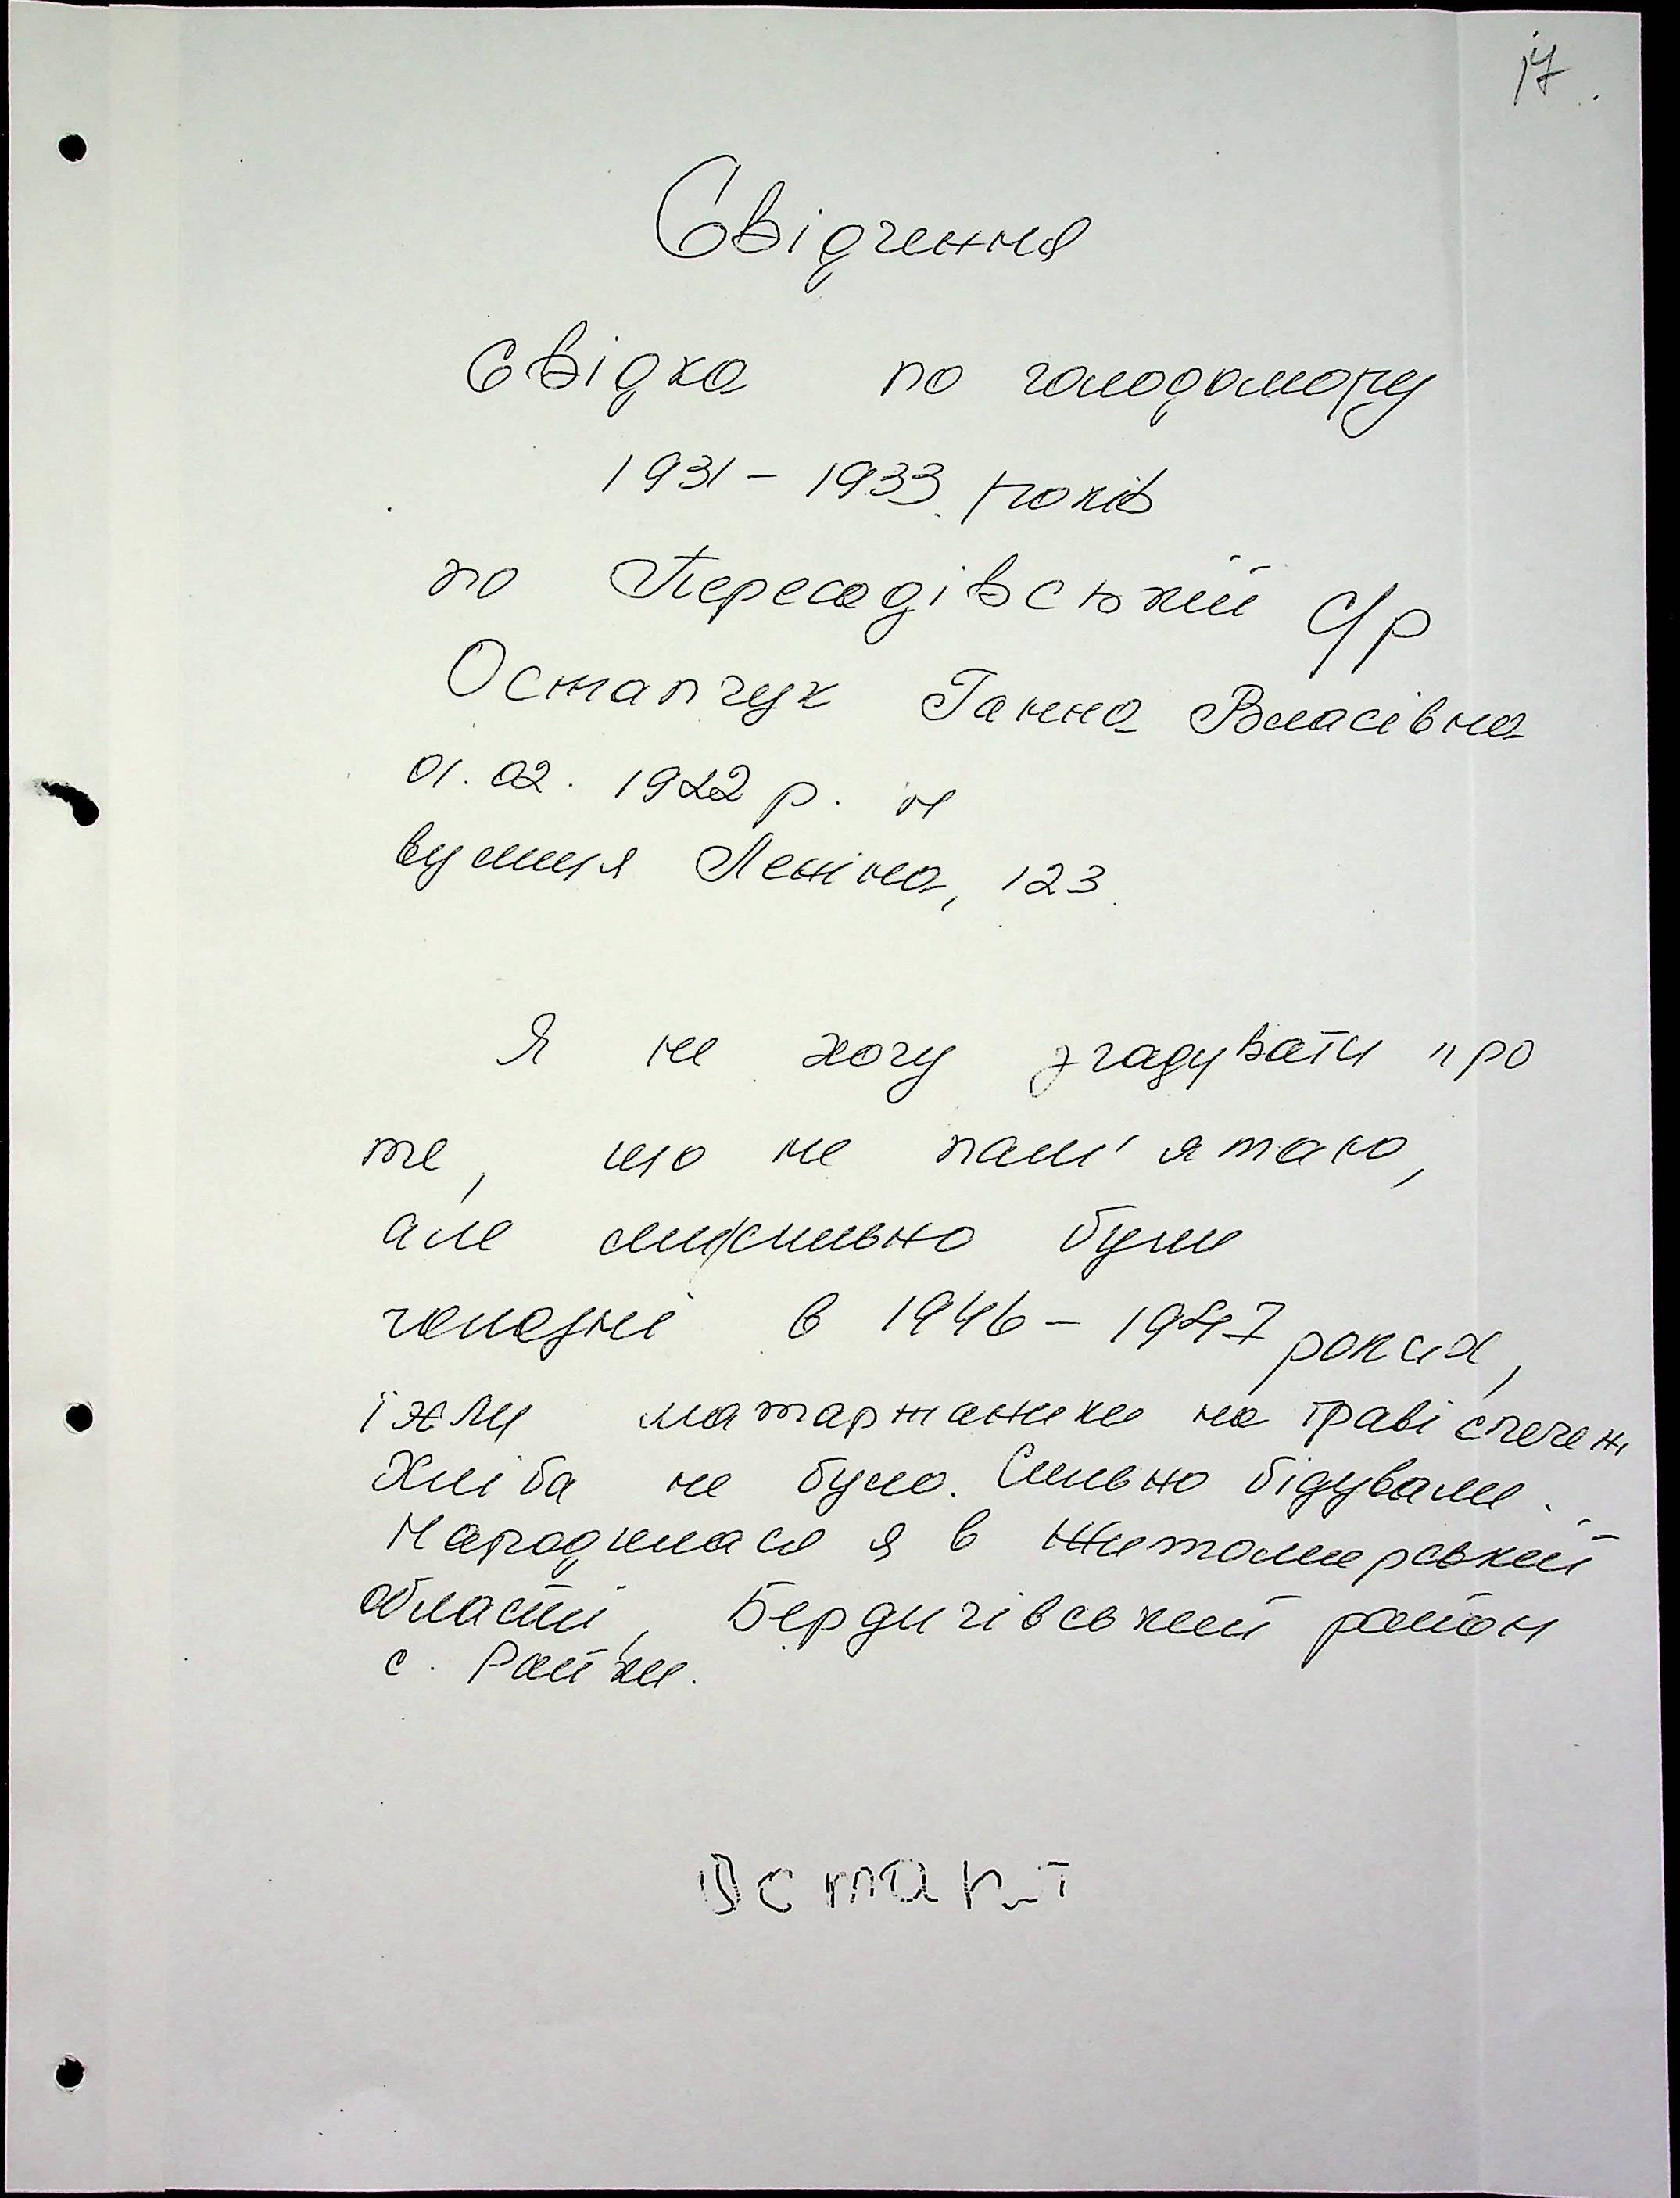 17.
Свідчення
свідка по голодомору
1931 - 1933 років
по Пересадівській с/р
Остапчук Ганна Власівна
01.02.1922 р. н
вулиця Леніна, 123.
Я не хочу згадувати про
те, що не пам'ятаю,
але сильно були
голодні в 1946 - 1947 роках,
їжли маторжаники на траві спечені
Хліба не було. Сильно бідували.
Народилася я в Житомирській
області, Бердичівський район
с. Райки.
Остап